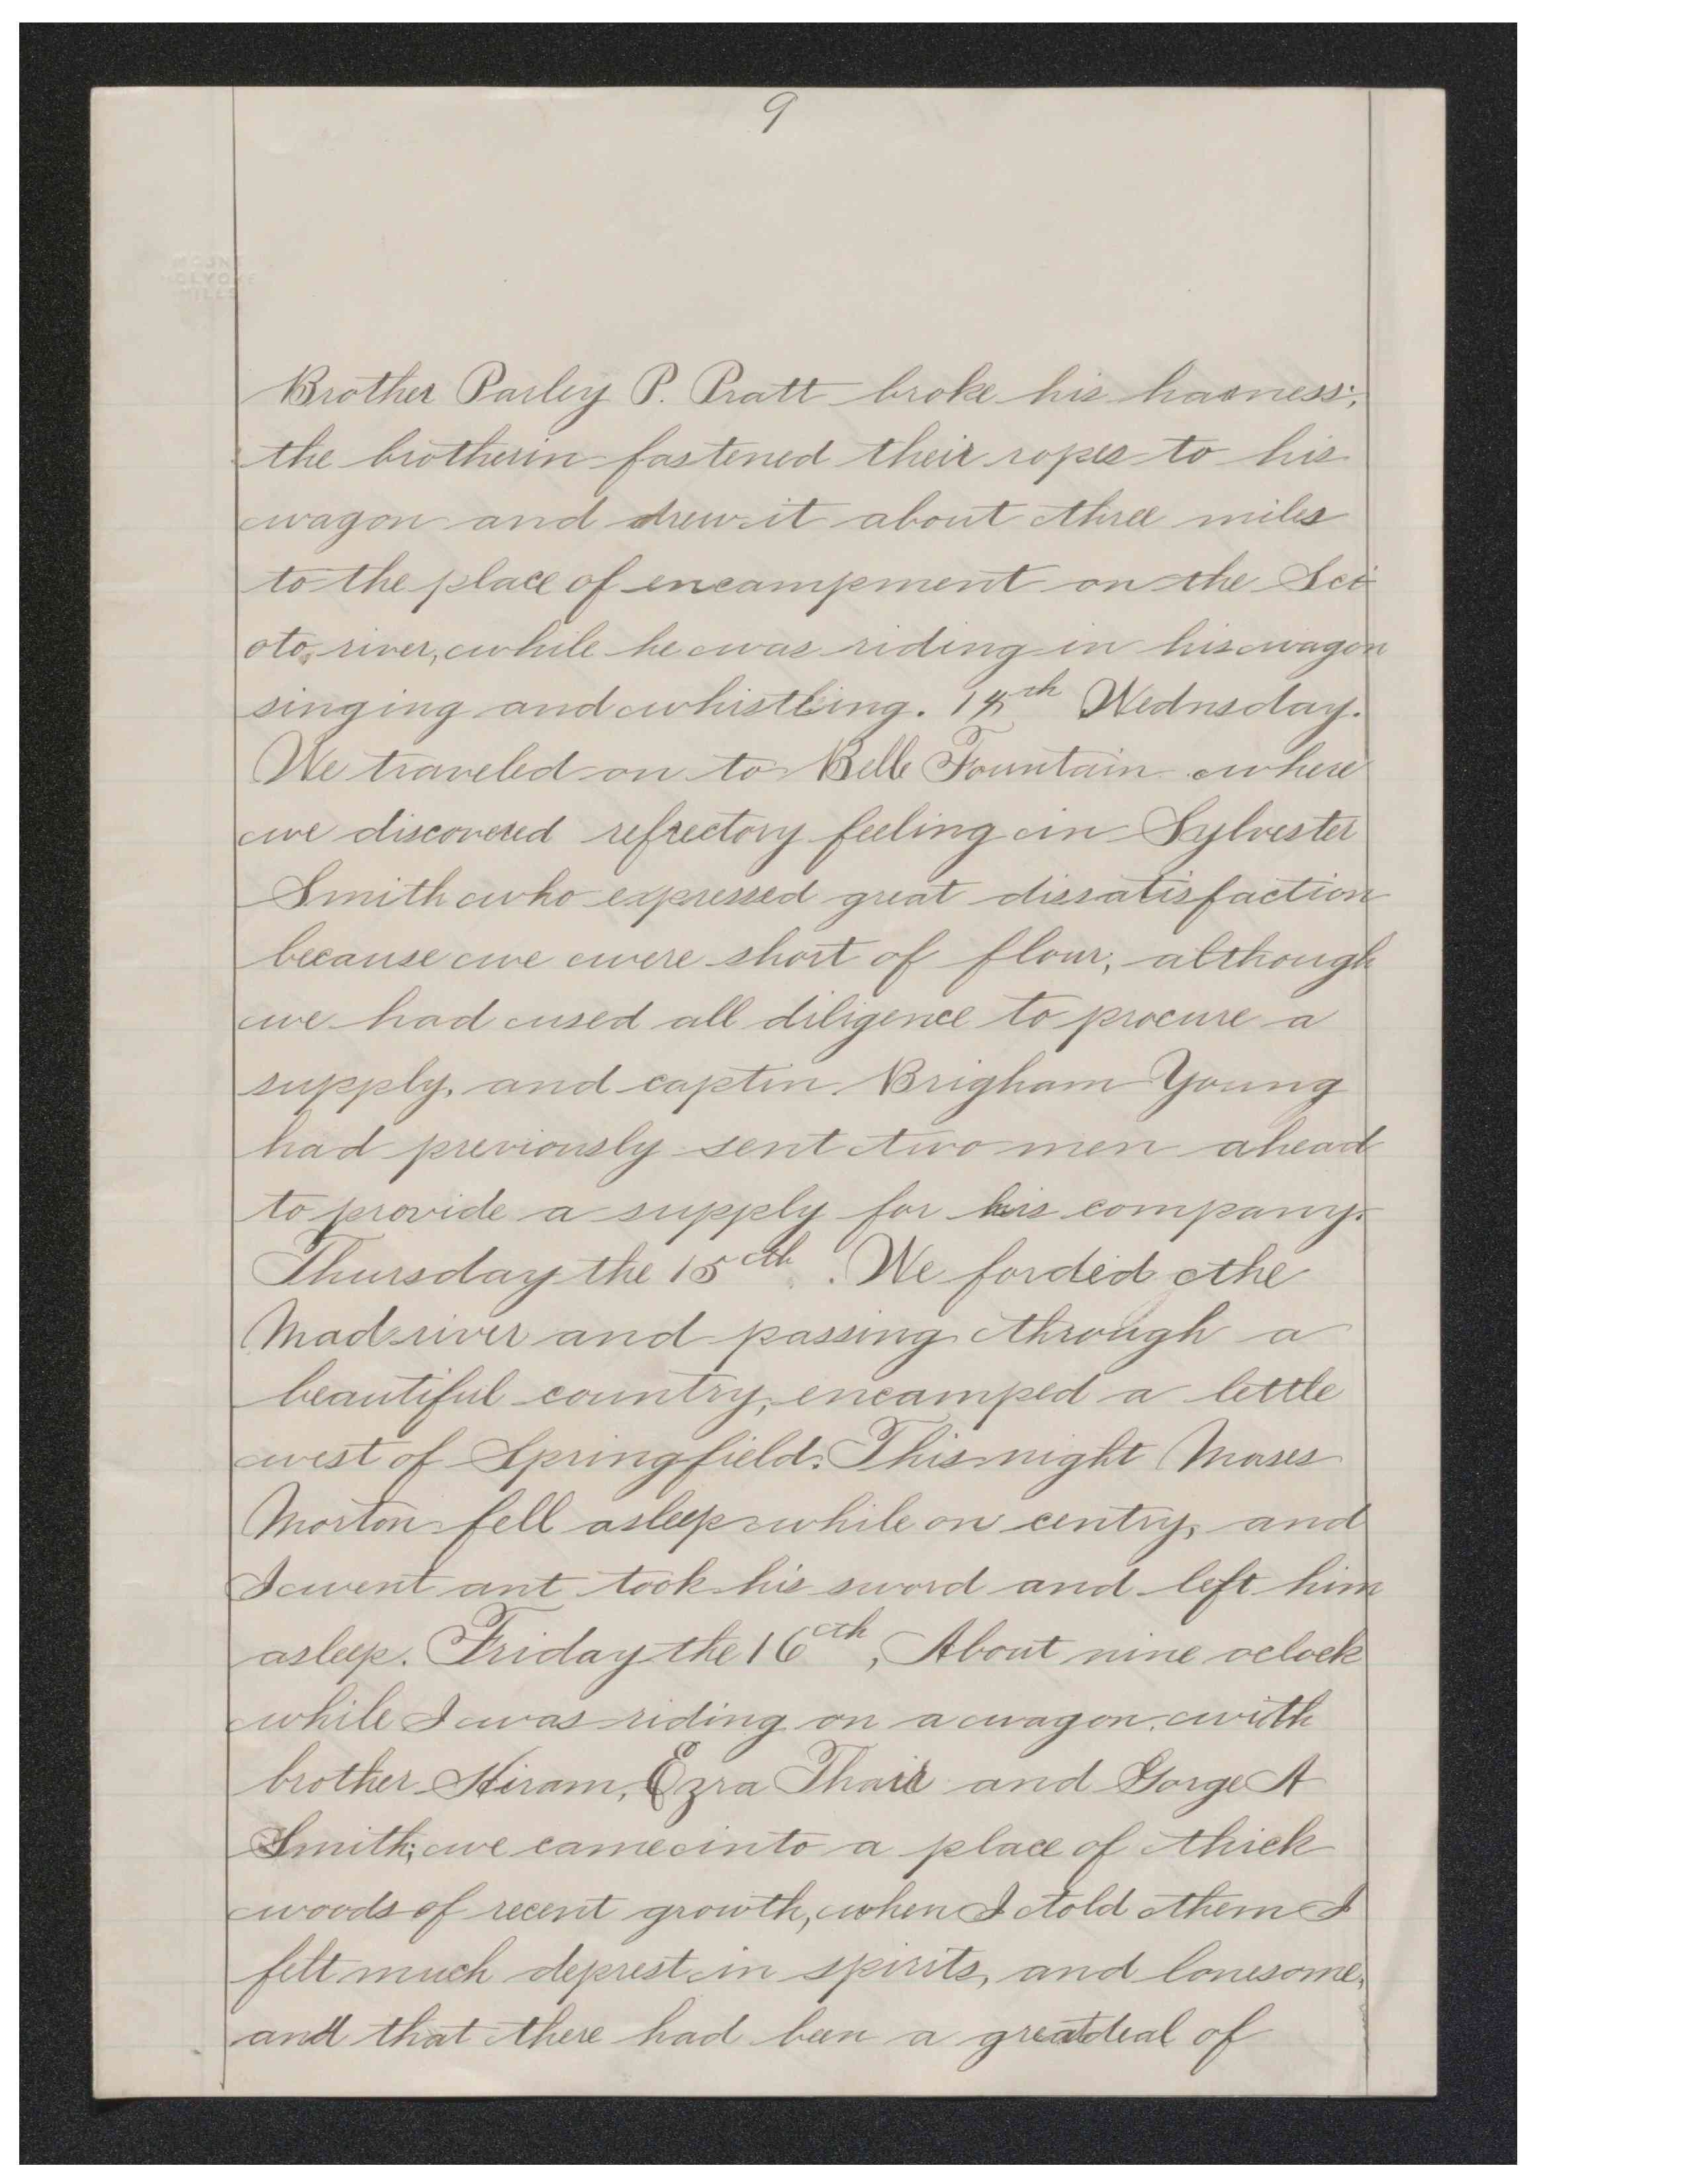 9
MOUNT
HOLYOKE
MILLS
Brother Parley P. Pratt broke his harness;
the brotherin fastened their ropes to his
wagon and drew it about three miles
to the place of encampment on the Sci
oto, river, while he was riding in his wagon
singing and whistling. 14th Wednsday.
We traveled on to Belle Fountain where
we discovered refrectory feeling in Sylvester
Smith who expressed great dissatisfaction
because we were short of flour, although
we had used all diligence to procure a
supply, and captin Brigham Young
had previously sent two men ahead
to provide a supply for his company.
Thursday the 15th. We forded the
Mad river and passing through a
beautiful country, encamped a little
west of Springfield. This night Moses
Morton fell asleep while on centry, and
I went ant took his sword and left him
asleep. Friday the 16th, About nine oclock
while I was riding on a wagon with
brother Hiram, Ezra Thair and Gorge A
Smith; we came into a place of thick
woods of recent growth, when I told them I
felt much deprest in spirits, and lonesome,
and that there had been a great deal of